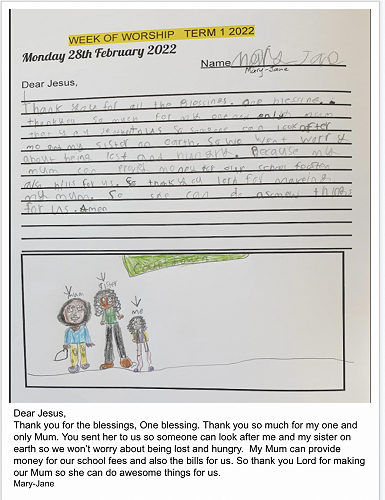 WEEK OF WORSHIP TERM 1 2022
Monday 28th February 2022
Name Mary-Jane
Mary-Jane
Dear Jesus,
Thank you for all the Blessings. One blessing.
thankyou so much for my one and only Mum
that you sent to us so someone can look after
me and my sister on earth so we won't worry
about being lost and hungry. Because my
mum can provid money for our school fees and
also bills for us. So thank you lord for making
my mum. So she can do asomes things
for us. Amen
Mum
sister
me
Dear Jesus,
Thank you for the blessings, One blessing. Thank you so much for my one and
only Mum. You sent her to us so someone can look after me and my sister on
earth so we won't worry about being lost and hungry.  My Mum can provide
money for our school fees and also the bills for us. So thank you Lord for making
our Mum so she can do awesome things for us.
Mary-Jane